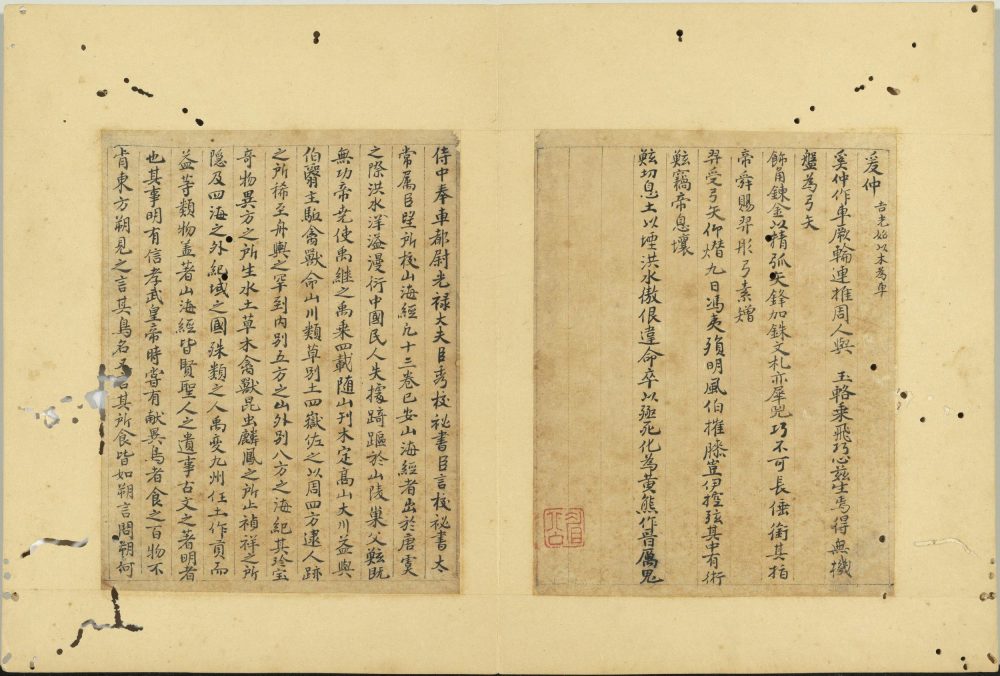 奚仲 吉光始以木為車
奚仲作車厥輪連推周人輿 玉輅乘飛巧心茲生焉得無機
盤為弓矢
飾角鍊金以精弧矢鋒加銖文札亦犀兕巧不可長倕銜其拍
帝舜賜羿彤弓素矰
羿受弓矢仰熸九日馮夷殞明風伯摧膝豈伊控弦其中有術
鮌竊帝息壤
鮌切息土以堙洪水傲佷違命卒以殛死化為黃熊作晉厲鬼
侍中奉車都尉光祿大夫臣秀校祕書臣言校祕書太
常屬臣望所校山海經凡十三卷已定山海經者出於唐虞
之際洪水洋溢漫衍中國民人失據踦䟸於山陵巢父鮌既
無功帝堯使禹継之禹乘四載随山刊木定髙山大川益與
伯翳主駈禽獸命山川類草別土四嶽佐之以周四方逮人跡
之所稀至舟輿之罕到内別五方之山外別八方之海紀其珍宝
奇物異方之所生水土草木禽獸昆虫麟鳳之所止禎祥之所
隐及四海之外絶域之國殊類之人禹變九州任土作貢而
益等類物盖著山海經皆賢聖人之遺事古文之著明者
也其事明有信孝武皇帝時嘗有献異鳥者食之百物不
肯東方朔見之言其鳥名又言其所食皆如朔言問朔何